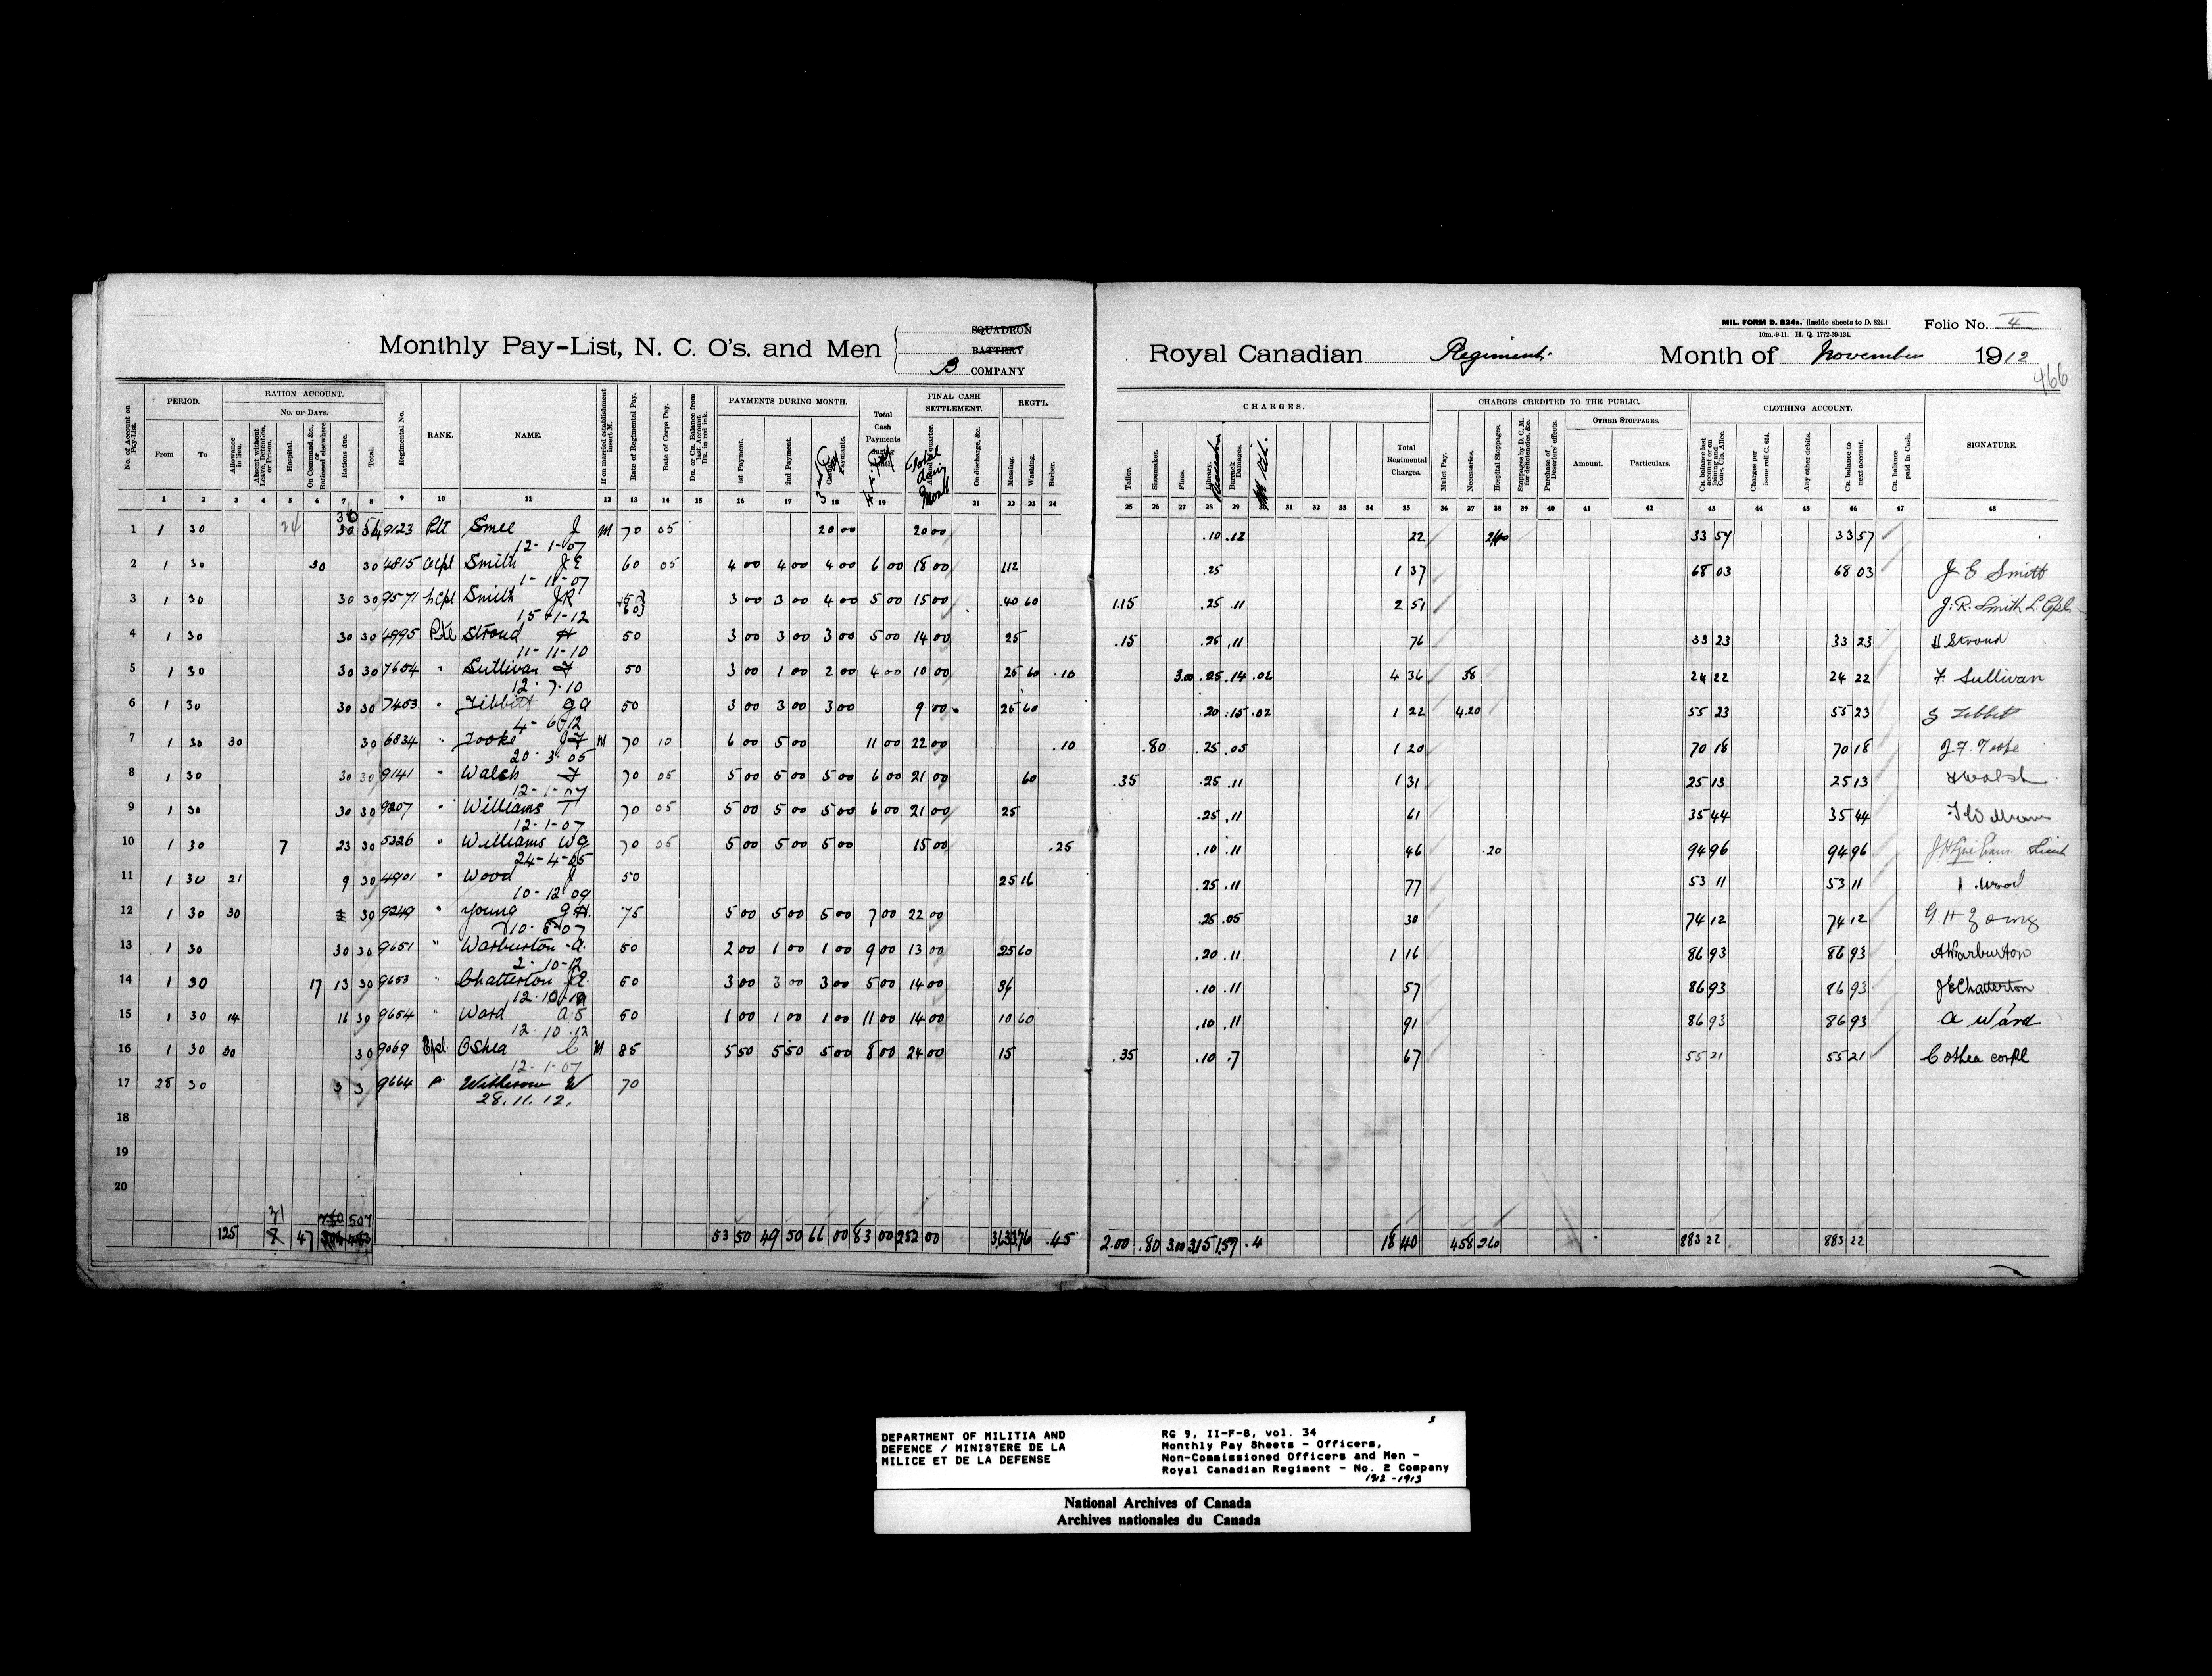 MIL. FORM D. 824a. (Inside sheets to D. 824.)
10m.-9-11. H. Q. 1772-39-134.
Folio No. 4
Monthly Pay-List, N. C. O's. and Men
SQUADRON
BATTERY
B COMPANY
Royal Canadian Regiment. Month of November 1912
466
No. of Account on Pay-List.
PERIOD.
From To
RATION ACCOUNT.
No. of Days.
Allowance in lieu.
Absent without Leave, Detention, or Prison.
Hospital.
On Command, &c., or Rationed elsewhere
Rations due.
Total.
Regimental No.
RANK.
NAME.
If on married establishment insert M.
Rate of Regimental Pay.
Rate of Corps Pay.
Dr. or Cr. Balance from last Account Dr. in red ink.
PAYMENTS DURING MONTH.
1st Payment.
2nd Payment.
Payments.
Total Cash Payments During Month.
FINAL CASH SETTLEMENT.
On discharge, &c.
REGT'L.
Messing.
Washing.
Barber.
CHARGES.
Tailor.
Shoemaker.
Fines.
Library
Barrack Damages.
Total Regimental Charges.
CHARGES CREDITED TO THE PUBLIC.
Mulct Pay.
Necessaries.
Hospital Stoppages.
Stoppages by D. C. M. for deficiencies, &c.
Purchase of Deserters' effects.
OTHER STOPPAGES.
Amount.
Particulars.
CLOTHING ACCOUNT.
Charges per issue roll C. 614.
Any other debits.
Cr. balance to next account.
Cr. balance paid in Cash.
SIGNATURE.
1 2 3 4 5 6 7 8 9 10 11 12 13 14 15 16 17 18 19 21 22 23 24 25 26 27 28 29 31 32 33 34 35 36 37 38 39 40 41 42 43 44 45 46 47 48
1 1 30 24 30 54 9123 Pte Smee J M 70 05 20 00 20 00 .10 .12 22 33 57 33 57
12-1-07
2 1 30 30 30 4815 Smith J E 60 05 4 00 4 00 4 00 6 00 18 00 112 .25 1 37 68 03 68 03 J. E Smith
1-11-07
3 1 30 30 30 9571 L Cpl Smith JR 50 60 3 00 3 00 4 00 5 00 15 00 .40 60 1.15 .25 .11 2 51 J. R. Smith L. Cpl
4 1 30 30 30 4995 Pte Stroud H 50 3 00 3 00 3 00 5 00 14 00 25 .15 .25 .11 76 33 23 33 23 H Stroud
11-11-10
5 1 30 30 30 7604 " Sullivan F 50 3 00 1 00 2 00 4 00 10 00 25 60 .10 3.00 .25 .14 .02 4 36 38 24 22 24 22 F. Sullivan
12-7-10
6 1 30 30 30 7453 " Tibbitt G A 50 3 00 3 00 3 00 9 00 25 60 .20 .15 .02 1 22 4.20 55 23 55 23
4-6-12
7 1 30 30 30 6834 " Tooke J F M 70 10 6 00 5 00 11 00 22 00 .10 .80 .25 .05 1 20 70 18 70 18
20-3-05
8 1 30 30 30 9141 " Walsh F 70 05 5 00 5 00 5 00 6 00 21 00 60 .35 .25 .11 1 31 25 13 25 13 Walsh
12-1-07
9 1 30 30 30 9207 " Williams T 70 05 5 00 5 00 5 00 6 00 21 00 25 .25 .11 61 35 44 35 44
12-1-07
10 1 30 7 23 30 5326 " Williams W G 70 05 5 00 5 00 5 00 15 00 .25 .10 .11 46 .20 94 96 94 96
24-4-05
11 1 30 21 9 30 4901 " Wood J 50 25 16 .25 .11 77 53 11 53 11 Wood
10-12-09
12 1 30 30 30 9249 " Young G H. 75 5 00 5 00 5 00 7 00 22 00 .25 .05 30 74 12 74 12 G H Young
13 1 30 30 30 9651 " Warburton A. 50 2 00 1 00 1 00 9 00 13 00 25 60 .20 .11 1 16 86 93 86 93 A Warburton
2-10-12
14 1 30 17 13 30 9653 " Chatterton 50 3 00 3 00 3 00 5 00 14 00 36 .10 .11 57 86 93 86 93 J E Chatterton
15 1 30 14 16 30 9654 " Ward A. S 50 1 00 1 00 1 00 11 00 14 00 10 60 .10 .11 91 86 93 86 93 A Ward
12.10.12
16 1 30 30 30 9069 Cpl. O'Shea C M 85 5 50 5 50 5 00 8 00 24 00 15 .35 .10 .7 67 55 21 55 21 C Oshea corpl
12-1-07
17 28 30 3 3 9664 70
28.11.12.
18
19
20
31 507
125 7 47 53 50 49 50 66 00 83 00 252 00 3.63 3.76 .45 2.00 .80 3.00 3.15 1.57 .4 18 40 4.58 2.60 883 22 883 22
3
DEPARTMENT OF MILITIA AND
DEFENCE / MINISTERE DE LA
MILICE ET DE LA DEFENSE
RG 9, II-F-8, vol. 34
Monthly Pay Sheets - Officers,
Non-Commissioned Officers and Men -
Royal Canadian Regiment - No. 2 Company
1912-1913
National Archives of Canada
Archives nationales du Canada